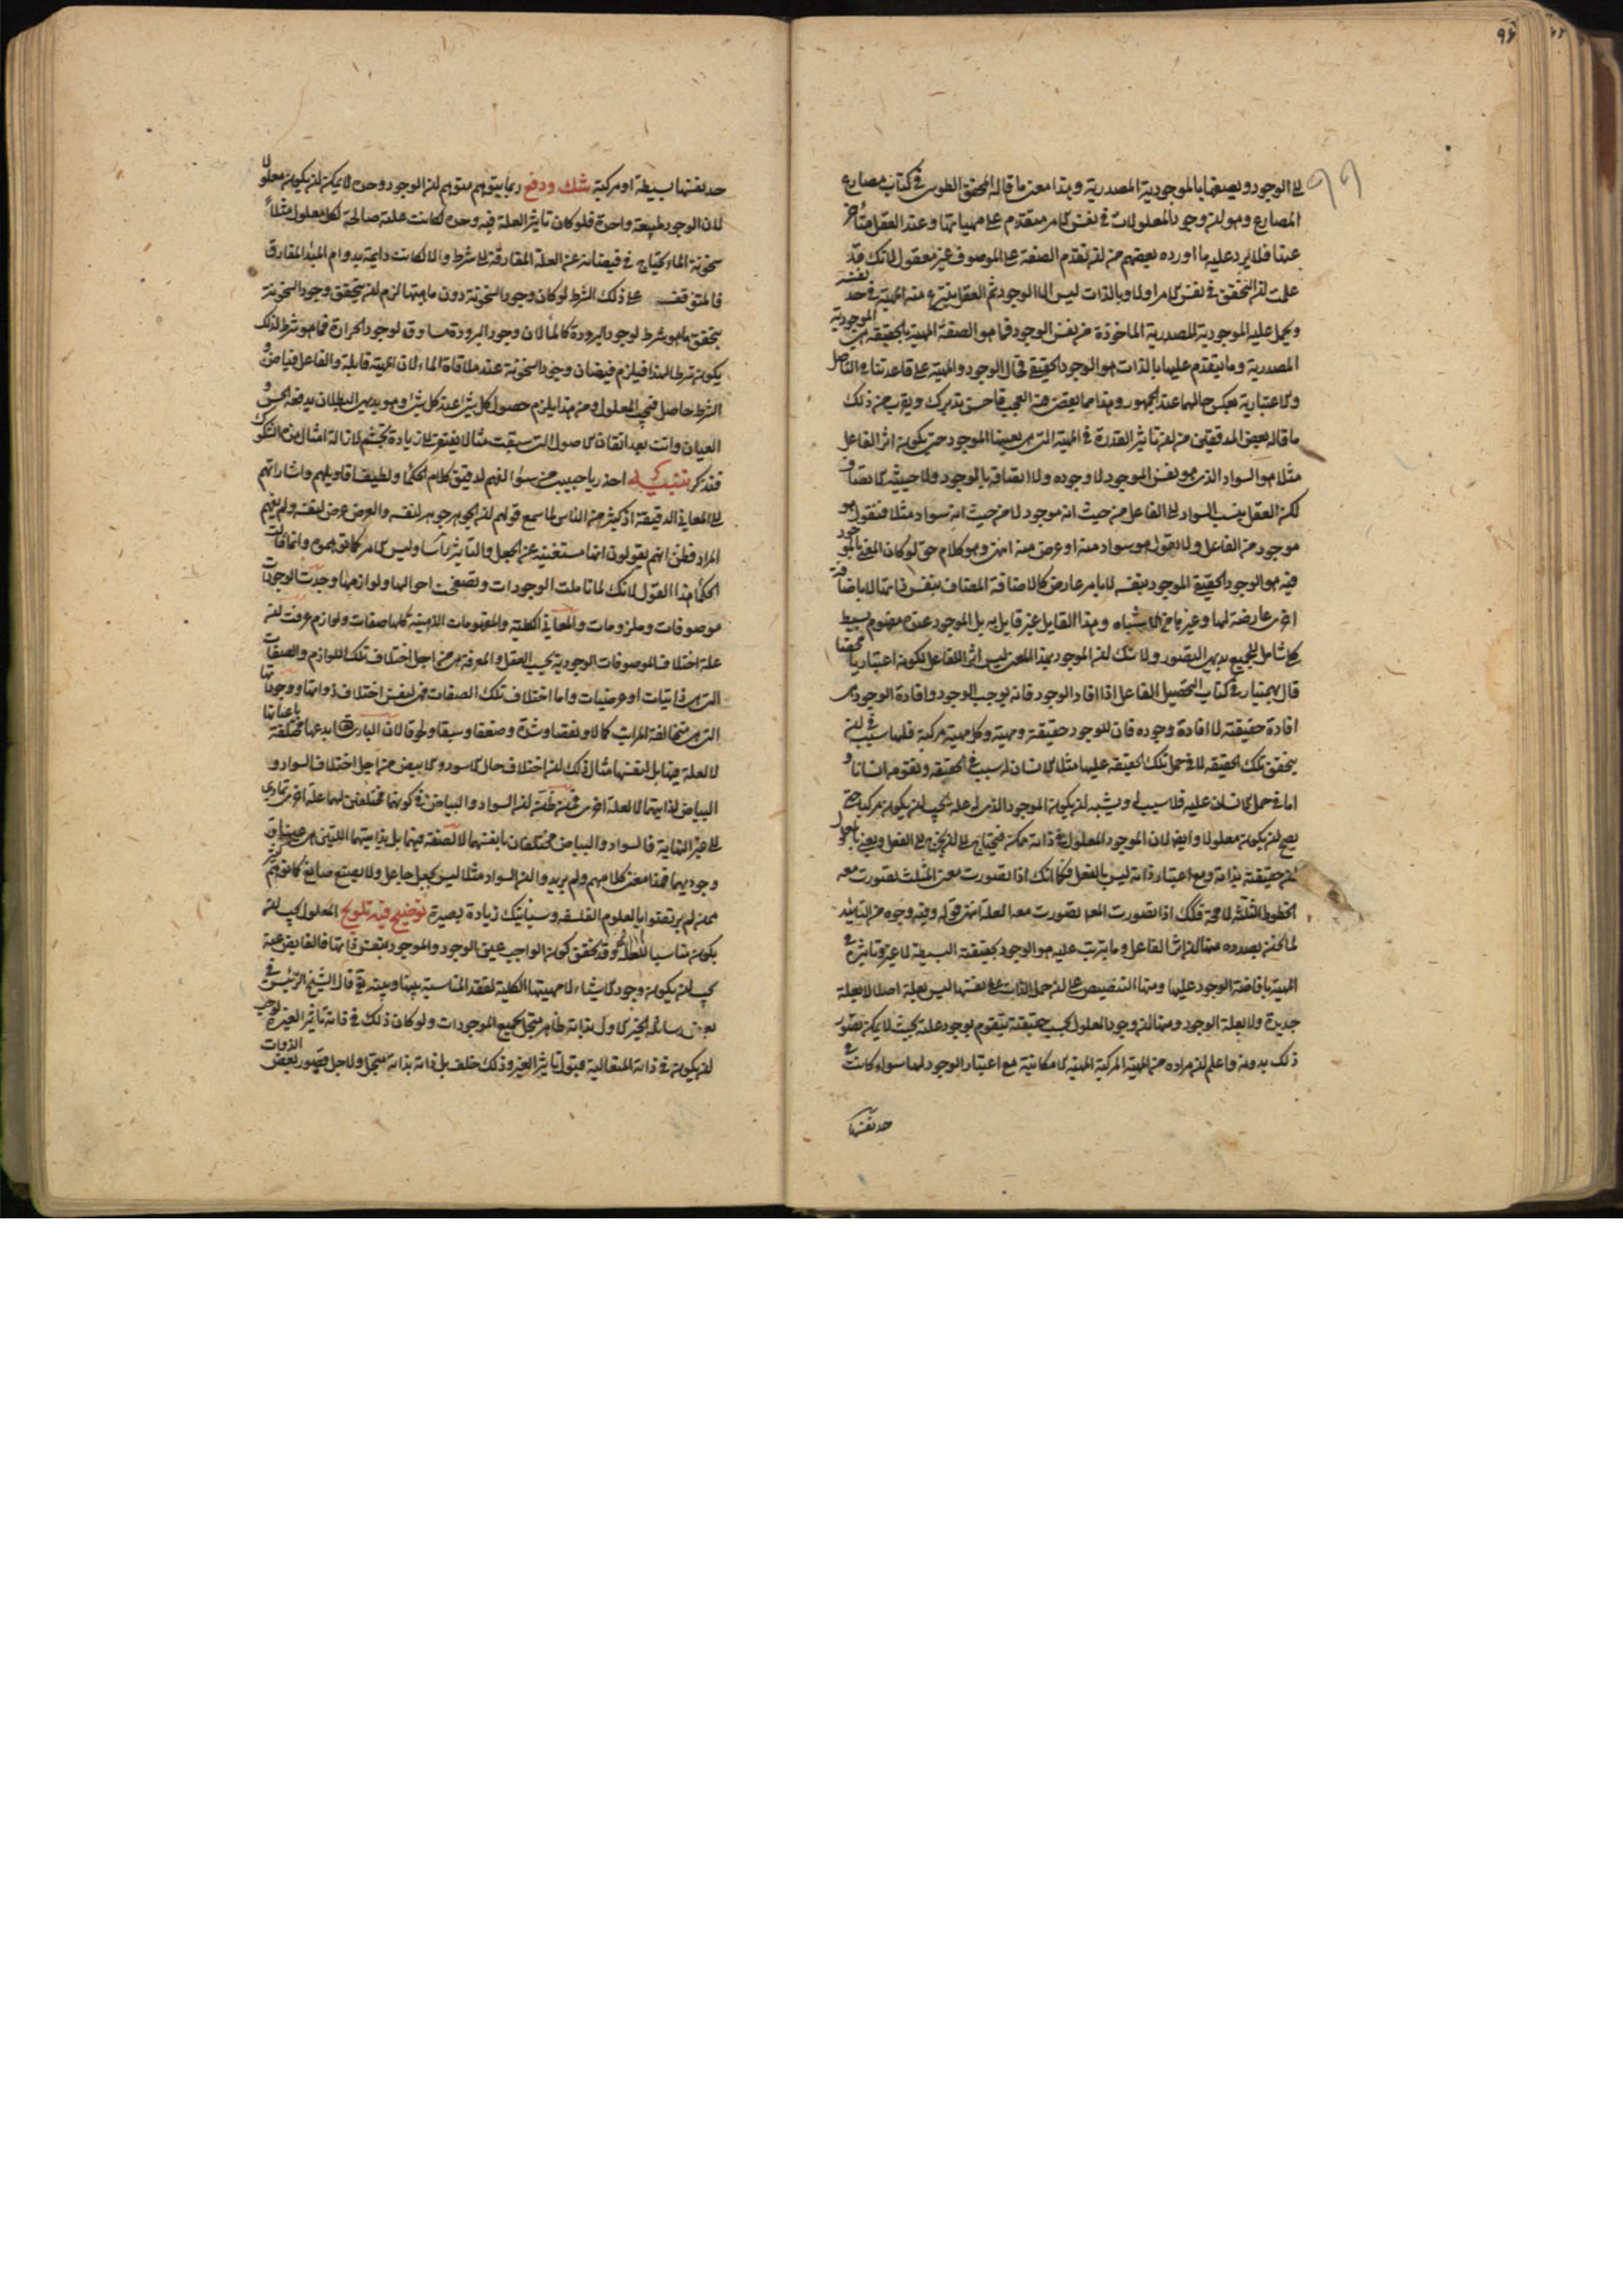 ٩٦
الى الوجود ويصفها بالموجودية المصدرية وهذا معنى ما قاله المحقق الطوسى فى كتاب مصارع
المصارع وهو ان وجود المعلولات فى نفس الامر متقدم على مهياتها وعند العقل متأخر
عنها فلا يرد عليه ما اورده بعضهم من ان تقدم الصفة على الموصوف غير معقول لانك قد
علمت ان المتحقق فى نفس الامر اولا وبالذات ليس الا الوجود ثم العقل ينتزع منه المهية فى حد نفسه
ويحمل عليه الموجودية المصدرية الماخوذة من نفس الوجود فما هو الصفة المهية بالحقيقة هى الموجودية
المصدرية وما يتقدم عليها بالذات هو الوجود الحقيقى فحال الوجود والمهية على قاعدتنا فى التاصل
والاعتبارية بعكس حالهما عند الجمهور وهذا مما يقضى منه العجب فاحسن تدبرك ويقرب من ذلك
ما قاله بعض المدققين من ان تاثير القدرة فى المهية التى هى بعينها الموجود حتى يكون اثر الفاعل
مثلا هو السواد الذى هو نفس الموجود لا وجوده ولا اتصافه بالوجود ولا حيثية الاتصاف
لكن العقل ينسب السواد الى الفاعل من حيث انه موجود لا من حيث انه سواد مثلا فنقول هو
موجود من الفاعل ولا نقول هو سواد منه او عرض منه انتهى وهو كلام حق لو كان المعنى بالموجود
فيه هو الوجود الحقيقى الموجود بنفسه لا بامر عارض كالاضافة المضاف بنفس ذاتها لا باضافة
اخرى عارضة لها وغير ما من الاشياء وهذا القايل غير قايل به بل الموجود عنده مفهوم بسيط
كلى شامل للجميع بديهى التصور ولا شك ان الموجود بهذا المعنى ليس اثرا للفاعل لكونه اعتباريا محضا
قال بهمنيار فى كتاب التحصيل الفاعل اذا افاد الوجود فانه يوجب الوجود وافادة الوجود هى
افادة حقيقته لا افادة وجوده فان للوجود حقيقة ومهية وكل مهية مركبة فلها سبب فى ان
يتحقق تلك الحقيقة لا فى حمل تلك الحقيقة عليها مثلا الانسان له سبب فى تحققه وتقومه انسانا و
اما فى حمل الانسان عليه فلا سبب له ويشبه ان يكون الموجود الذى له علة يجب ان يكون مركبا حتى
يصح ان يكون معلولا وايضا لان الموجود المعلول فى ذاته ممكن فيحتاج الى ان يخرج الى الفعل ويعنى بالمعلول
ان حقيقته بذاته ومع اعتبار ذاته ليس بالفعل فكما انك اذا تصورت معنى المثلث تصورت معه
الخطوط الثلثة لا محة فكذلك اذا تصورت المعلول تصورت معه العلة انتهى قوله وفيه وجوه من التاييد
لما نحن بصدده منها ان اثر الفاعل وما يترتب عليه هو الوجود بحقيقته البسيطة لا غير وتاثيره فى
المهية بافاضة الوجود عليها ومنها التنصيص على ان حمل الذات على نفسها ليس بعلة اصلا لا بعلة
جديدة ولا بعلة الوجود ومنها ان وجود المعلول بحسب حقيقته يتقوم بوجود علته بحيث لا يمكن تصور
ذلك بدونه واعلم ان مراده من المهية المركبة المهية الامكانية مع اعتبار الوجود لها سواء كانت فى
حد نفسها
حد نفسها بسيطة او مركبة شك ودفع ربما يتوهم متوهم ان الوجود وحده لا يمكن ان يكون معلولا
لان الوجود طبيعة واحدة فلو كان تاثير العلة فيه وحده لكانت علته صالحة لكل معلول مثلاً
سخونة الماء يحتاج فى فيضانه عن العلة المفارقة الى شرط والا لكانت دايمة بدوام المبدأ المفارق
فالمتوقف على ذلك الشرط لو كان وجود السخونة دون ماهيتها لزم ان يتحقق وجود السخونة
بتحقق ما هو شرط لوجود البرودة كالماء لان وجود البرودة مساوق لوجود الحرارة فما هو شرط لذلك
يكون شرطا لهذا فيلزم فيضان وجود السخونة عند ملاقاة الماء لان المهية قابلة والفاعل فياض و
الشرط حاصل فيجب المعلول ومن هذا يلزم حصول كل شئ عند كل شئ وهو بديهى البطلان يدفعه الحس و
العيان وانت بعد اتقان الاصول التى سبقت منا لا تفتقر الى زيادة تجشم لازالة امثال هذه الشكوك
فتذكر تنبيه احذر يا حبيبى من سوء الفهم لدقيق كلام الحكما ولطيف اقاويلهم واشاراتهم
الى المعانى الدقيقة اذ كثير من الناس لما سمع قولهم ان الجوهر جوهر لنفسه والعرض عرض لنفسه ولم يفهم
المراد فظن انهم يقولون انها مستغنية عن الجعل والتاثير رأسا وليس الامر كما توهموه وانما قالت
الحكما هذا القول لانك لما تاملت الوجودات وتصفحت احوالها ولوازمها وجدت الوجودات
موصوفات وملزومات والمعانى الكلية والمفهومات الذهنية كلها صفات ولوازم عرفت ان
علة اختلاف الموصوفات الوجودية بحسب العقل والمعرفة هى من اجل اختلاف تلك اللوازم والصفات
التى هى ذاتيات او عرضيات واما اختلاف تلك الصفات فهى لنفس اختلاف ذواتها ووجوداتها
التى هى متخالفة المراتب كمالا ونقصا وشدة وضعفا وسبقا ولحوقا لان البارى ابدعها مختلفة باعيانها
لا لعلة فيها بل لنفسها مثال ذلك ان اختلاف حال الاسود والابيض من اجل اختلاف السواد و
البياض لذاتيهما لا لعلة اخرى فمن ظن ان السواد والبياض فى كونهما مختلفين لهما علة اخرى تمادى
الى غير النهاية فالسواد والبياض مختلفان بانفسهما لا لصفة فيهما بل بذاتيهما اللتين هى عين
وجوديهما فهذا معنى كلامهم ولم يريدوا ان السواد مثلا ليس بجعل جاعل ولا بصنع صانع كما توهم كثير
ممن لم يرتضوا بالعلوم الفلسفية وسيأتيك زيادة بصيرة توضيح فيه تلويح المعلول يجب ان
يكون مناسبا للعلة وقد تحقق كون الواجب عين الوجود والموجود بنفس ذاتها فالفايض عنه
يجب ان يكون وجود الاشياء لا مهيتها الكلية لفقد المناسبة بينها وبينه تع قال الشيخ الرئيس فى
بعض رسائله الخير الاول بذاته ظاهر متجل لجميع الموجودات ولو كان ذلك فى ذاته تاثيرا لغيره لوجب
ان يكون فى ذاته المتعالية قبول تاثير الغير وذلك خلف بل ذاته بذاته متجل ولاجل قصور بعض الذوات